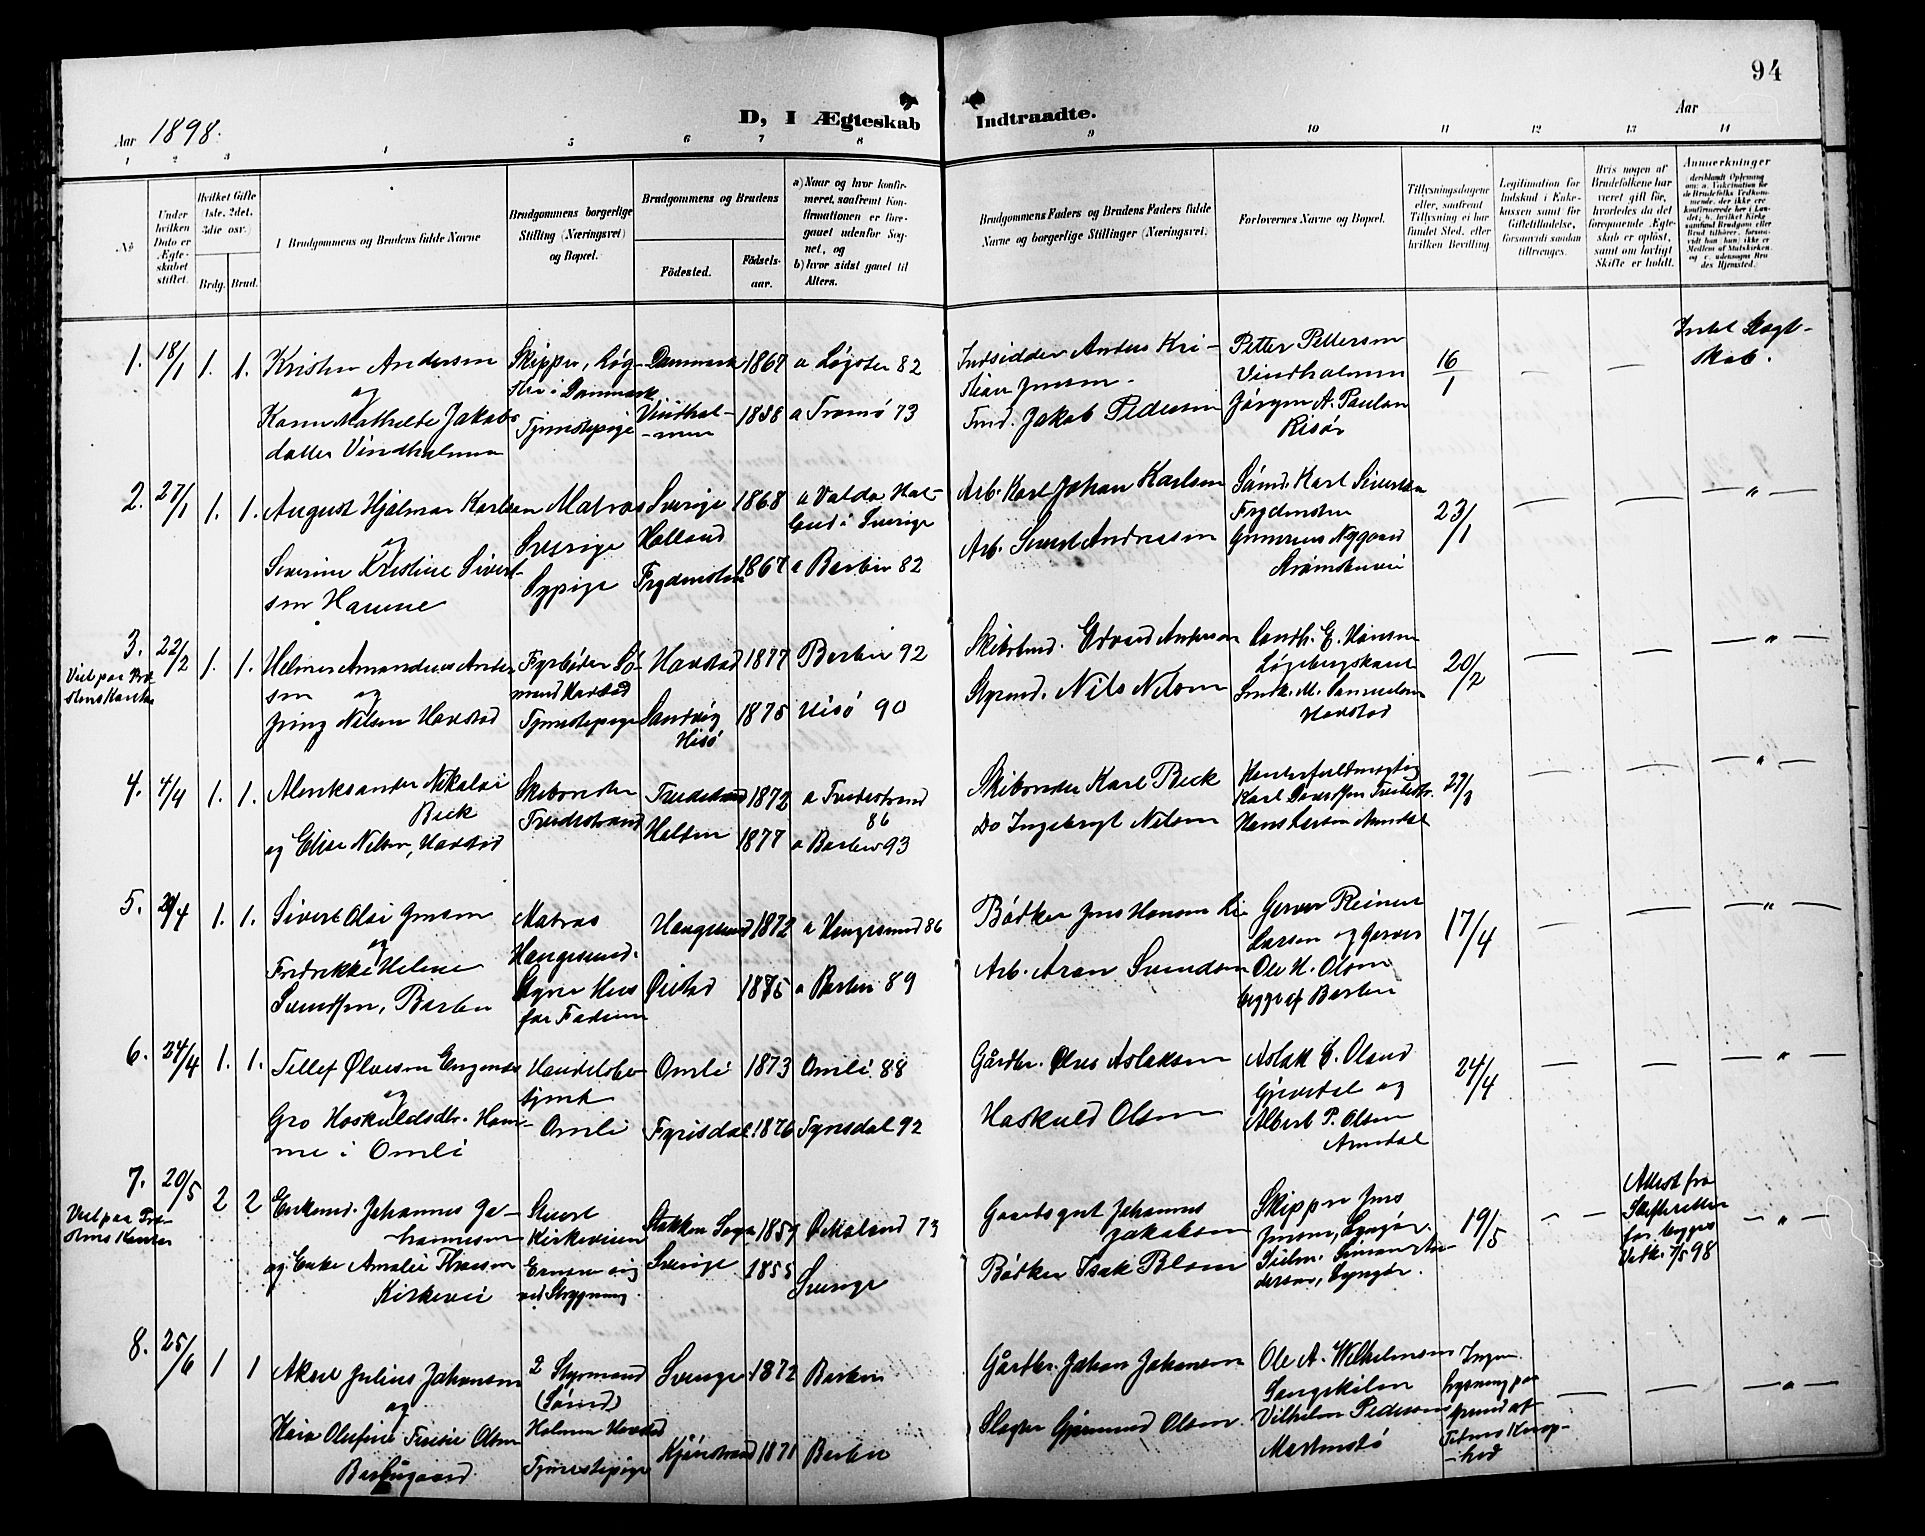 94
Aar 1898.
D, I Ægteskab Indtraadte.
Aar
1 2 3 4 5 6 7 8 9 10 11 12 13 14
No.
Under hvilken Dato er Ægteskabet stiftet.
Hvilket Gifte 1ste, 2det, 3die osv.)
Brdg. Brud.
Brudgommens og Brudens fulde Navne
Brudgommens borgerlige Stilling (Næringsvei) og Bopæl.
Brudgommens og Brudens
Födested.
Födselsaar.
a) Naar og hvor konfirmeret, saafremt Konfirmationen er foregaaet udenfor Sognet, og
b) hvor sidst gaaet til Alters.
Brudgommens Faders og Brudens Faders fulde Navne og borgerlige Stillinger (Næringsvei)
Forlovernes Navne og Bopæl.
Tillysningsdagene eller, saafremt Tillysning ei har fundet Sted, efter hvilken Bevilling
Legitimation for Indskud i Enkekassen samt for Giftetilladelse, forsaavidt saadan tiltrænges.
Hvis nogen af Brudefolkene har været gift før, hvorledes da det foregaaende Ægteskab er opløst, samt om lovligt Skifte er holdt.
Anmerkninger
1. 18/1 1. 1.
Kristen Andersen
og
Karen Mathilde Jakobs
datter Vindholmen
Skipper, Løg-
stør i Danmark
Tjenestepige
Danmark 1867
Vindhol-
-men 1858
a Løgstør 82
a Tromø 73
Indsidder Anders Kri-
stian Jensen.
Tmd. Jakob Pedersen
Petter Pettersen
Vindholmen
Jörgen A. Paulsen
Risør
16/1
Intet Slægt-
skab.
2. 27/1 1. 1.
August Hjalmar Karlsen
og
Severine Kristine Sivert-
sen Hamne
Matros
Sverige
Sypige
Sverige 1868
Halland
Frydensten 1867
a Valda Hal-
land i Sverige
a Barbu 82
Arb. Karl Johan Karlsen
Arb. Sivert Andreasen
Sömd Karl Sivertsen
Frydensten
Gunerius Nygaard
23/1
3. 22/2 1. 1.
Viet paa Præ-
stens Kontor
Helmer Amandeus Ander
sen og
Jensy Nilsen Havstad
Fyrbøder Sö-
mand Havstad
Tjenestepige
Havstad 1877
Sandvig 1875
Hisö
Barbu 92
Hisö 90
Skibstmd. Edvard Andersen
Styrmd. Nils Nilsen
Landh. E. Hansen
Snedk. M. Samuelsen
Havstad
20/2
4. 4/4 1. 1.
Aleksander Nikolai
Beck
og Elise Nilsen, Havstad
Skibsreder
Tvedestrand
Tvedestrand 1872
Holten 1877
a Tvedestrand
86
a Barbu 93
Skibsreder Karl Beck
Do Ingebregt Nilsen
Kontorfuldmægtig
Karl Davidsen Tvedestr.
Hans Larsen Arendal
27/3
5. 1. 1.
Sivert Olai Jensen
og
Fredrikke Helene
Svendsen, Barbu
Matros
Haugesund.
Styrer Hus
for Faderen
Haugesund 1872
Øiestad 1875
a Haugesund 86
a Barbu 89
Bödker Jens Hansen Lie
Arb. Aron Svendsen
Garver Reinert
Larsen og Garver
Ole H. Olsen
begge af Barbu
17/4
6. 24/4 1. 1.
Tellef Ølvesen Engenes
og
Gro Hoskuldsdtr. Ham-
me i Omli
Handelsbe-
tjent
Omli
Omli 1873
Fyrisdal 1876
Omli 88
Fyrisdal 92
Gårdbr. Ølves Aslaksen
Haskuld Olsen
Aslak E. Oland
Gjövedal og
Albert P. Olsen
Arendal
24/4
7. 20/5 2 2
Viet paa Præ-
stens Kontor
Enkemd. Johannes Jo-
hannesen
og Enke Amalie Thorsen
Kirkevei
Stuert
Kirkeveien
Ernærer sig
ved Strygning
Stokken Sogn 1857
Sverige 1855
Ø. Moland 73
Sverige
Gaardsgut Johannes
Jakobsen
Bödker Isak Blom
Skipper Jens
Jensen, Lyngør.
Seilm. Simon An-
dersen, Lyngør.
19/5
Attest fra
Skifteretten
for begges
Vedk. 7/5 98
8. 25/6 1 1
Aksel Julius Johansen
og
Kaia Olufine Terese Olsen
Barbugaard
2 Styrmand
(Sömd)
Holmen Havstad
Tjenestepige
Sverige 1872
1871
Barbu
Barbu
Gårdbr. Johan Johansen
Slagter Gjermund Olsen
Ole A. Wilhelmsen
Songekilen
Vilhelm Pedersen
Mertensö
Ingen
lysning paa
Grund af
Tidens Knap-
-hed